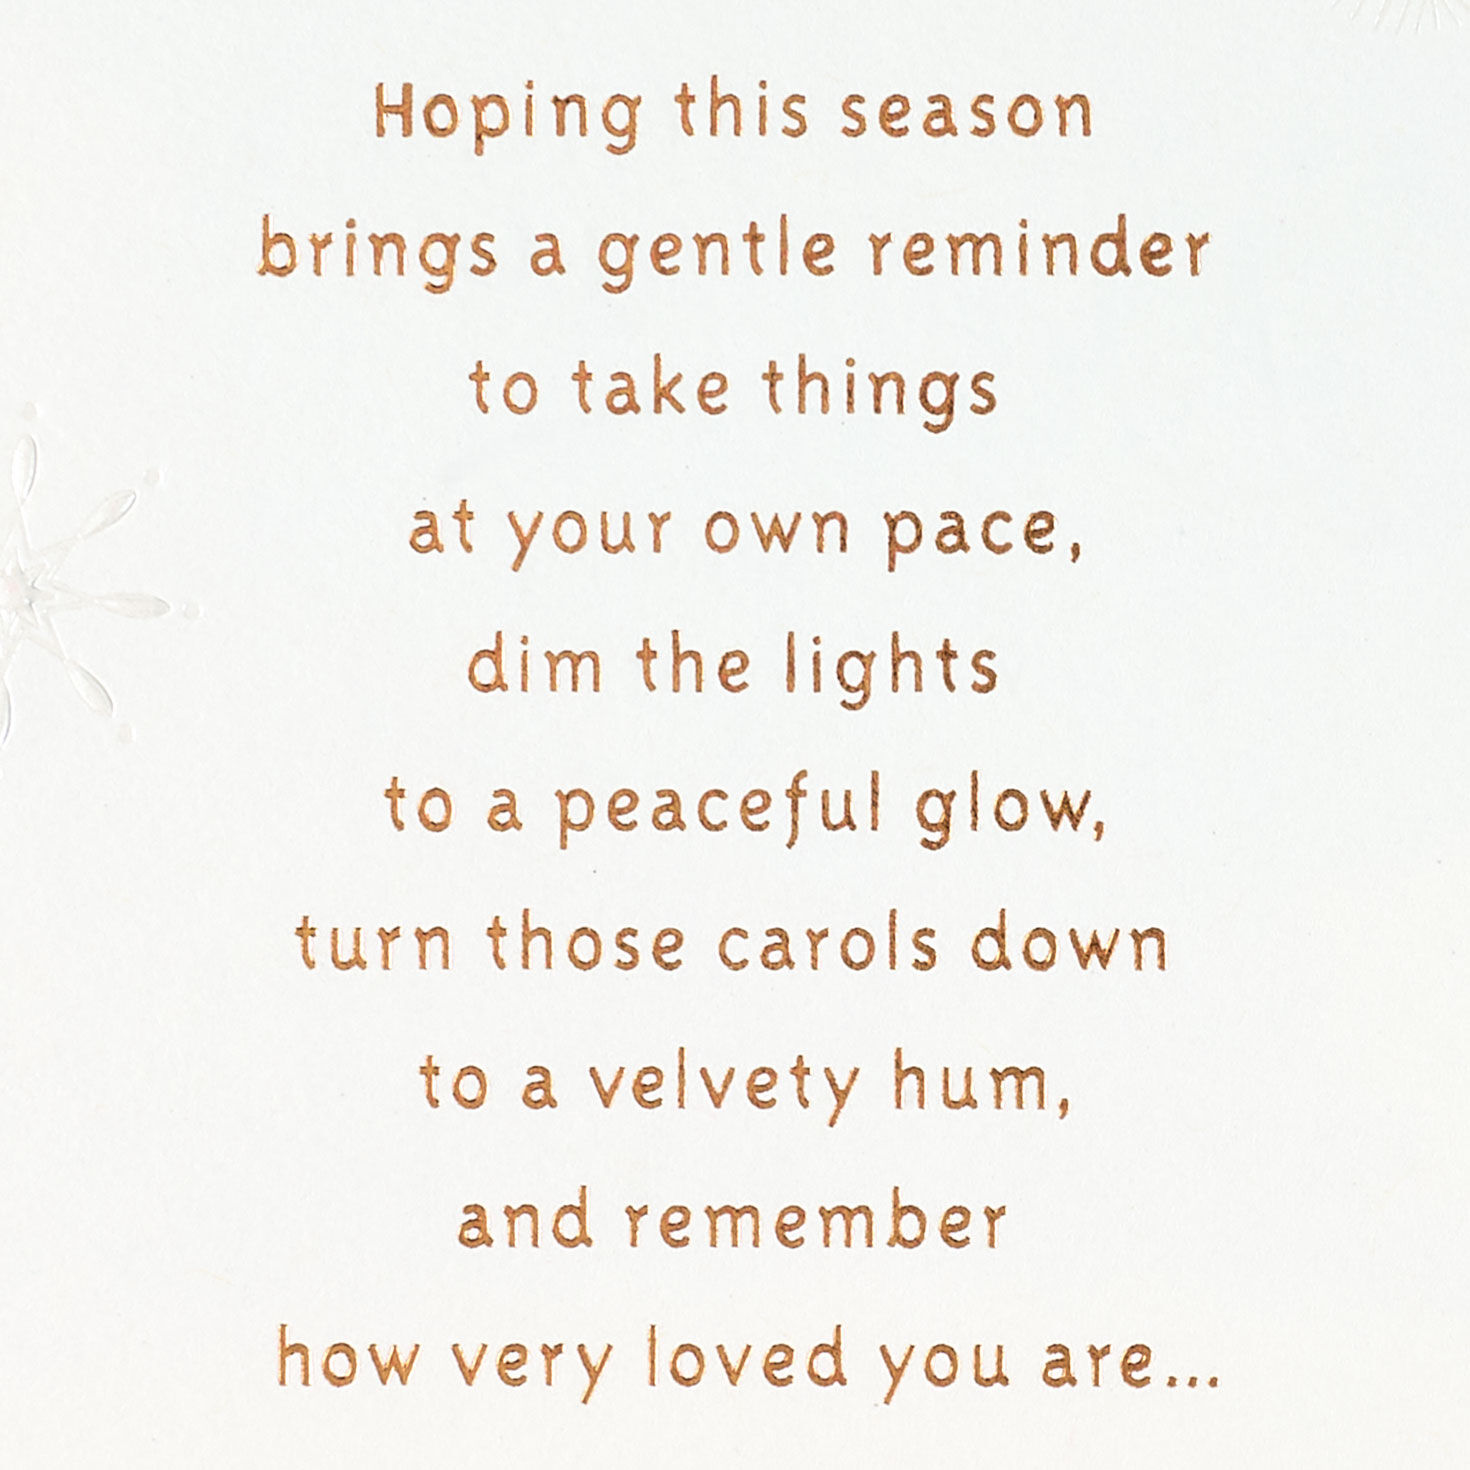 Hoping this season
brings a gentle reminder
to take things
at your own pace,
dim the lights
to a peaceful glow,
turn those carols down
to a velvety hum,
and remember
how very loved you are...